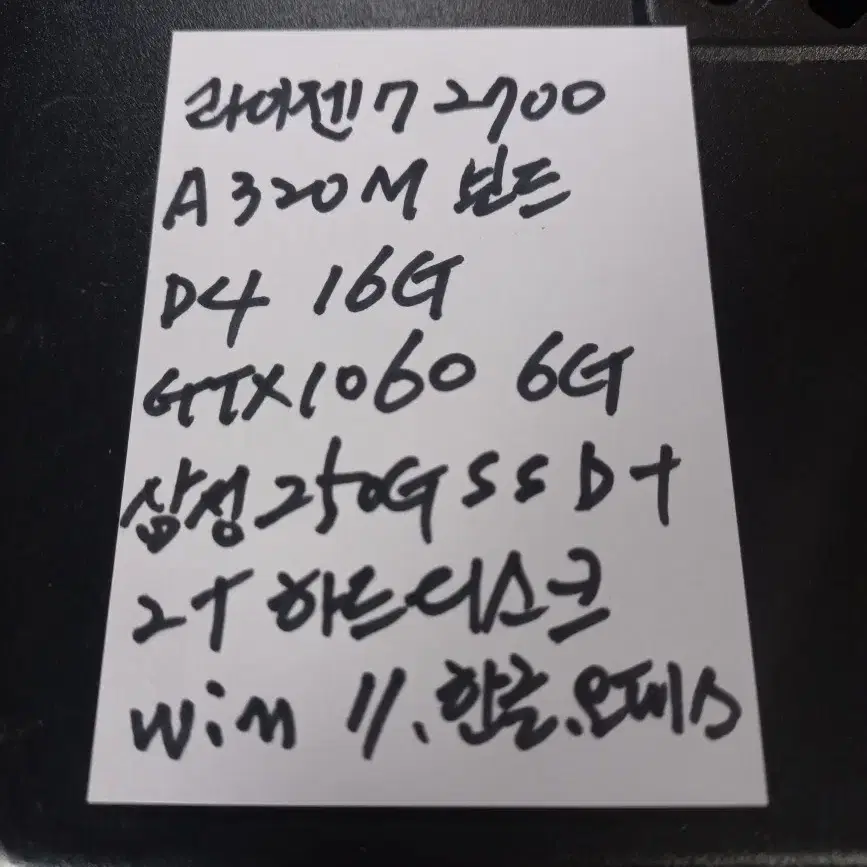 라이젠7 2700
A320M 보드
D4 16G
GTX1060 6G
삼성250G SSD+
2T 하드디스크
Win 11. 한글.오피스